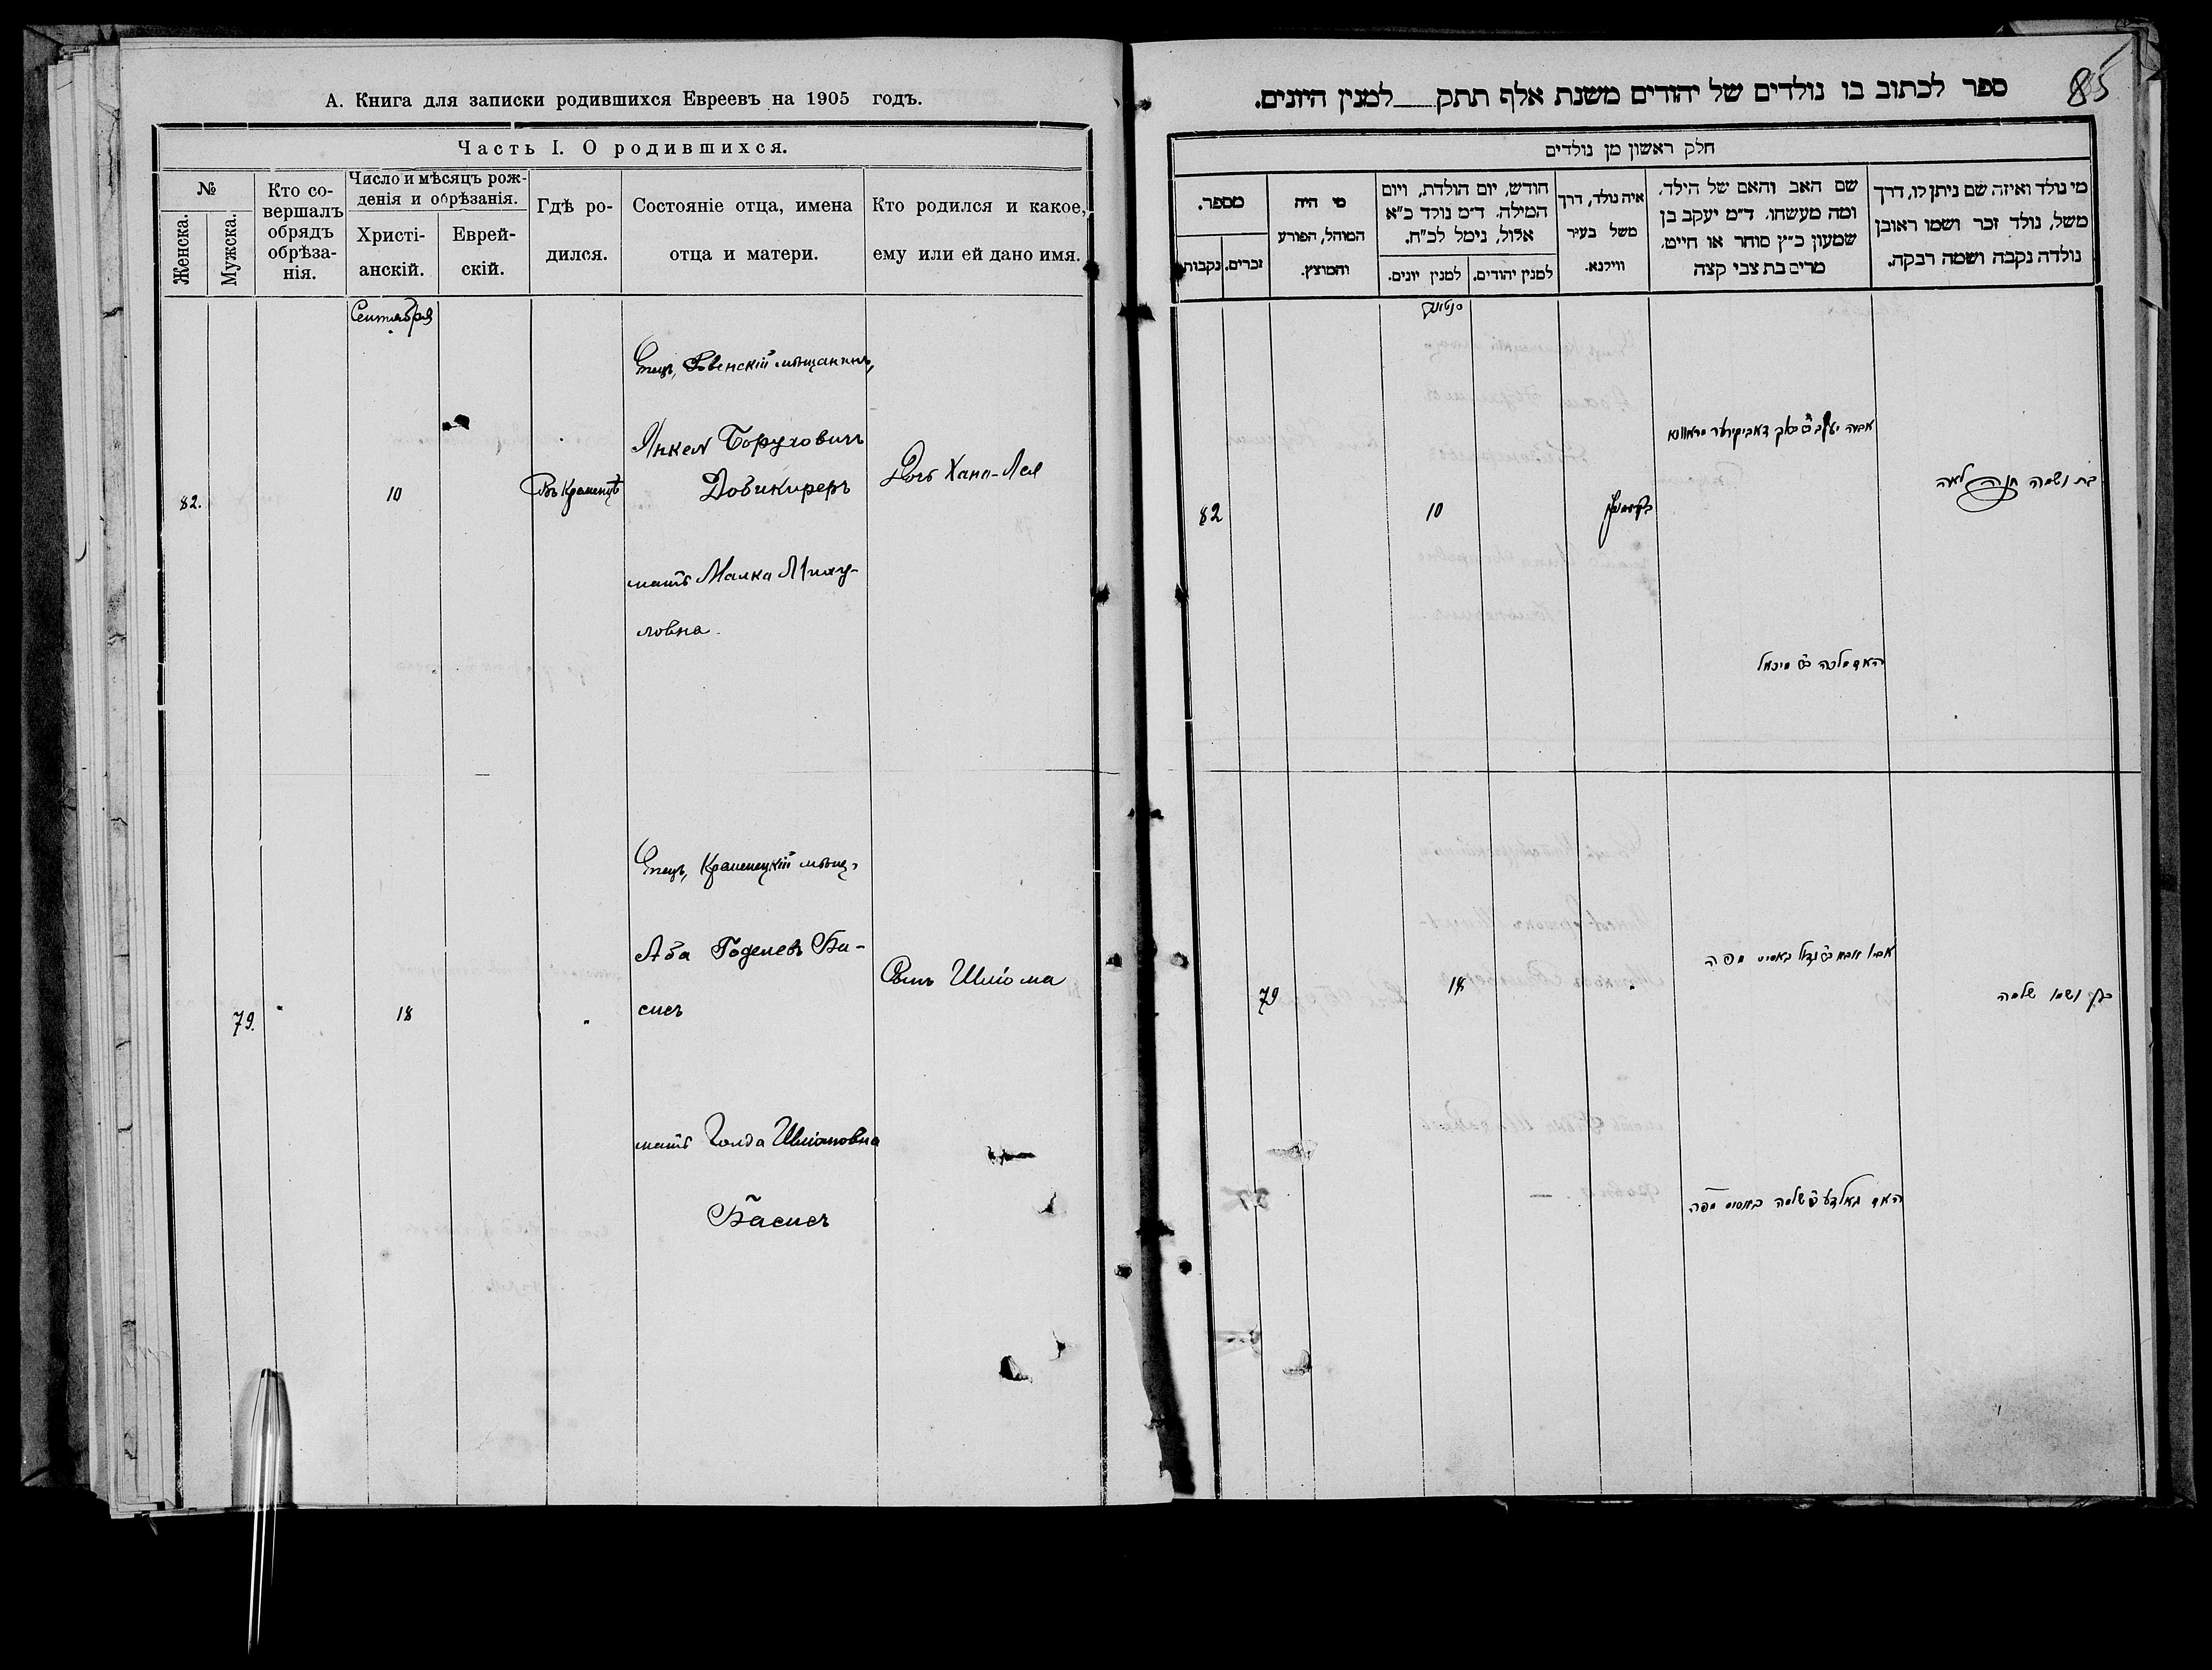 А. Книга для записки родившихся Евреевъ на 1905 годъ.
Часть I. О родившихся.
№
Женска.
Мужска.
Кто со-
вершалъ
обрядъ
обрѣза-
нія.
Число и мѣсяцъ рож-
денія и обрѣзанія.
Христі-
анскій.
Еврей-
скій.
Гдѣ ро-
дился.
Состояніе отца, имена
отца и матери.
Кто родился и какое,
ему или ей дано имя.
Сентября
82.
10
Въ Кременцѣ
Отецъ, Ровенскій мѣщанинъ,
Янкель Боруховичъ
Довикиреръ
мать Малка Миху-
ловна.
Дочь Хана-Лея
79.
18
Отецъ, Кременецкій мѣщ.
Аба Годелевъ Ба-
сисъ
мать Голда Шліомовна
Басисъ
Сынъ Шліома
85
ספר לכתוב בו נולדים של יהודים משנת אלף תתק למנין היונים.
חלק ראשון מן נולדים
מספר.
נקבות
זכרים.
מי היה
המוהל, הפורע
והמוצץ.
חודש, יום הולדת, ויום
המילה. ד״מ נולד כ״א
אלול, נימל לכ״ח.
למנין יונים.
למנין יהודים.
איה נולד, דרך
משל בעיר
ווילנא.
שם האב והאם של הילד.
ומה מעשהו. ד״מ יעקב בן
שמעון כ״ץ סוחר או חייט.
מרים בת צבי קצה
מי נולד ואיזה שם ניתן לו, דרך
משל, נולד זכר ושמו ראובן
נולדה נקבה ושמה רבקה.
82
10
בת ושמה חנה לאה
האם מלכה מיכאל
79
18
זכר ושמו שלמה
האם גאלדע שלמה באסיס